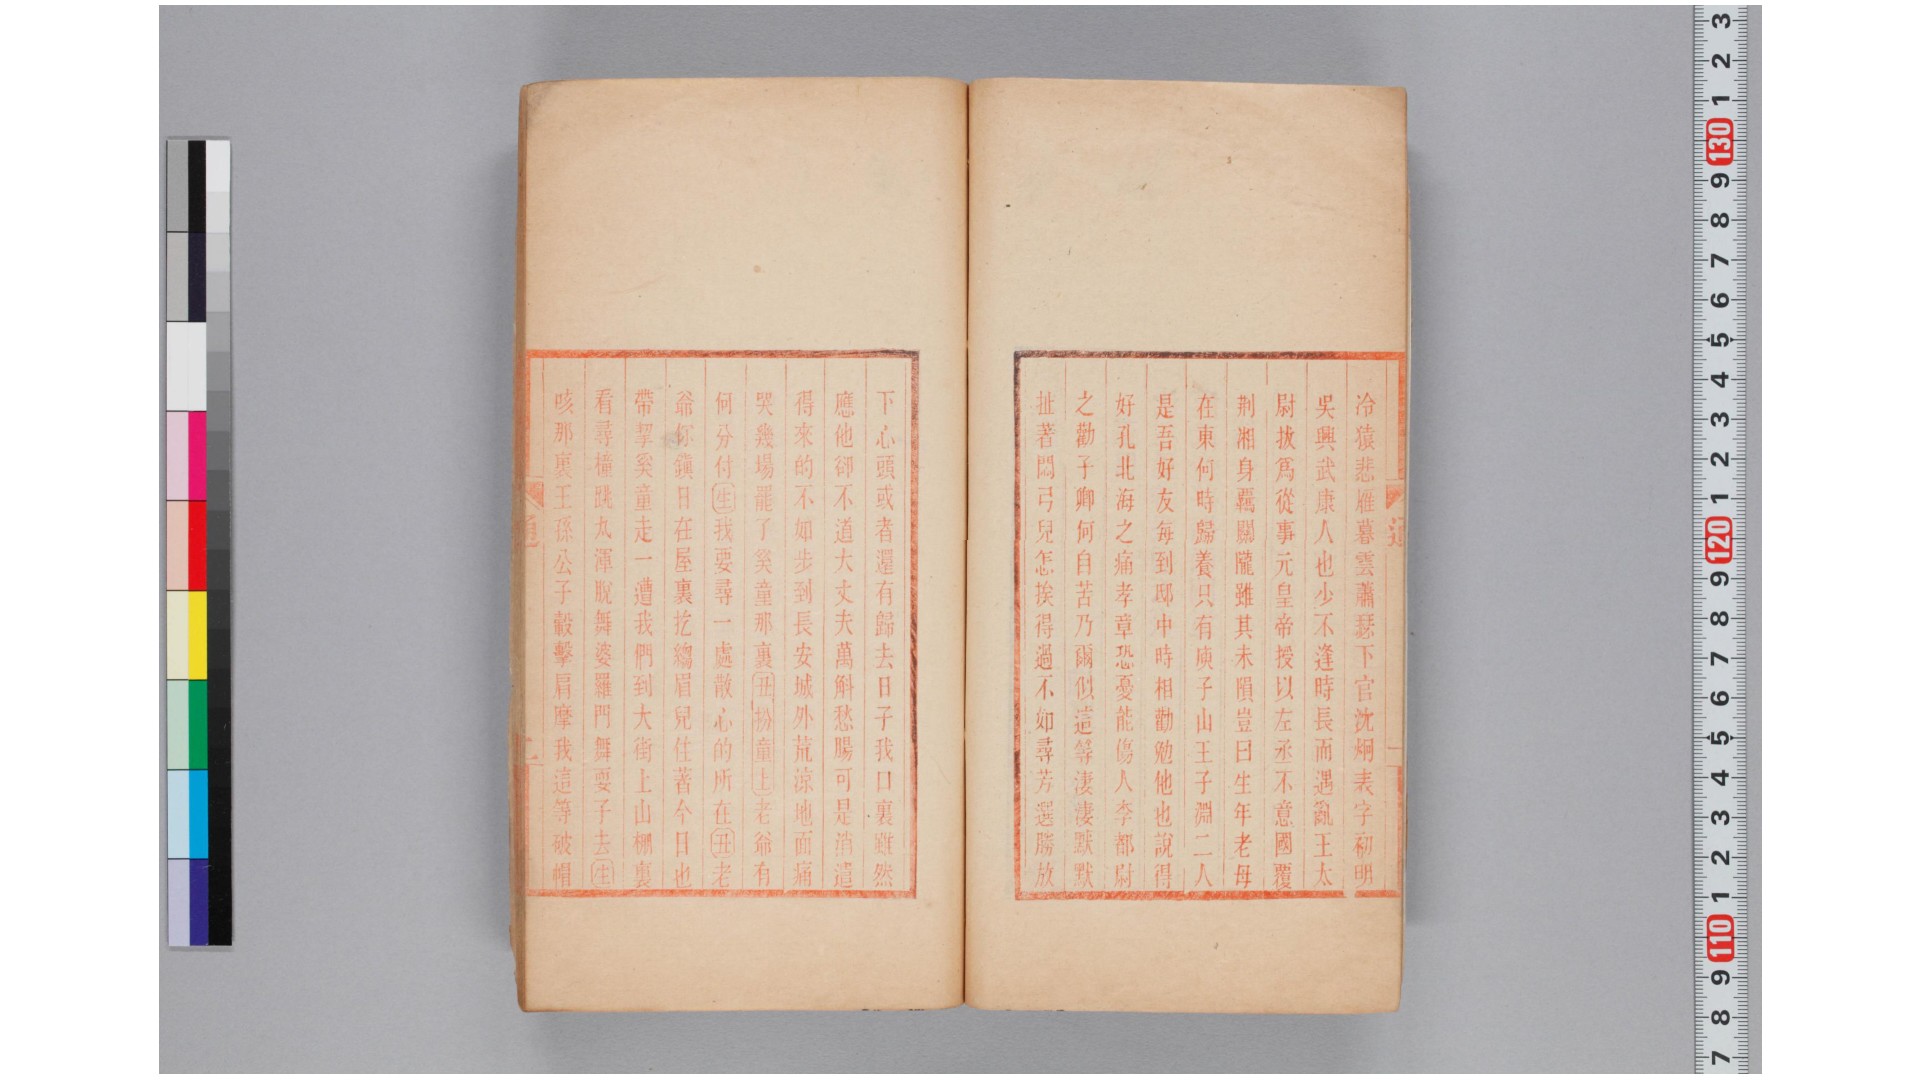 冷猿悲雁暮雲蕭瑟下官沈烱表字初明
吳興武康人也少不逢時長而遇亂王太
尉拔爲從事元皇帝授以左丞不意國覆
荆湘身羈關隴雖其未隕豈曰生年老母
在東何時歸養只有庾子山王子淵二人
是吾好友每到邸中時相勸勉他也說得
好孔北海之痛孝章恐憂能傷人李都尉
之勸子卿何自苦乃爾似這等淒淒默默
扯著悶弓兒怎挨得過不如尋芳選勝放
下心頭或者還有歸去日子我口裏雖然
應他卻不道大丈夫萬斛愁腸可是消遣
得來的不如步到長安城外荒涼地面痛
哭幾場罷了奚童那裏丑扮童上老爺有
何分付生我要尋一處散心的所在丑老
爺你鎭日在屋裏扢縐眉兒住著今日也
帶挈奚童走一遭我們到大街上山棚裏
看尋橦跳丸渾脫舞婆羅門舞耍子去生
咳那裏王孫公子轂擊肩摩我這等破帽